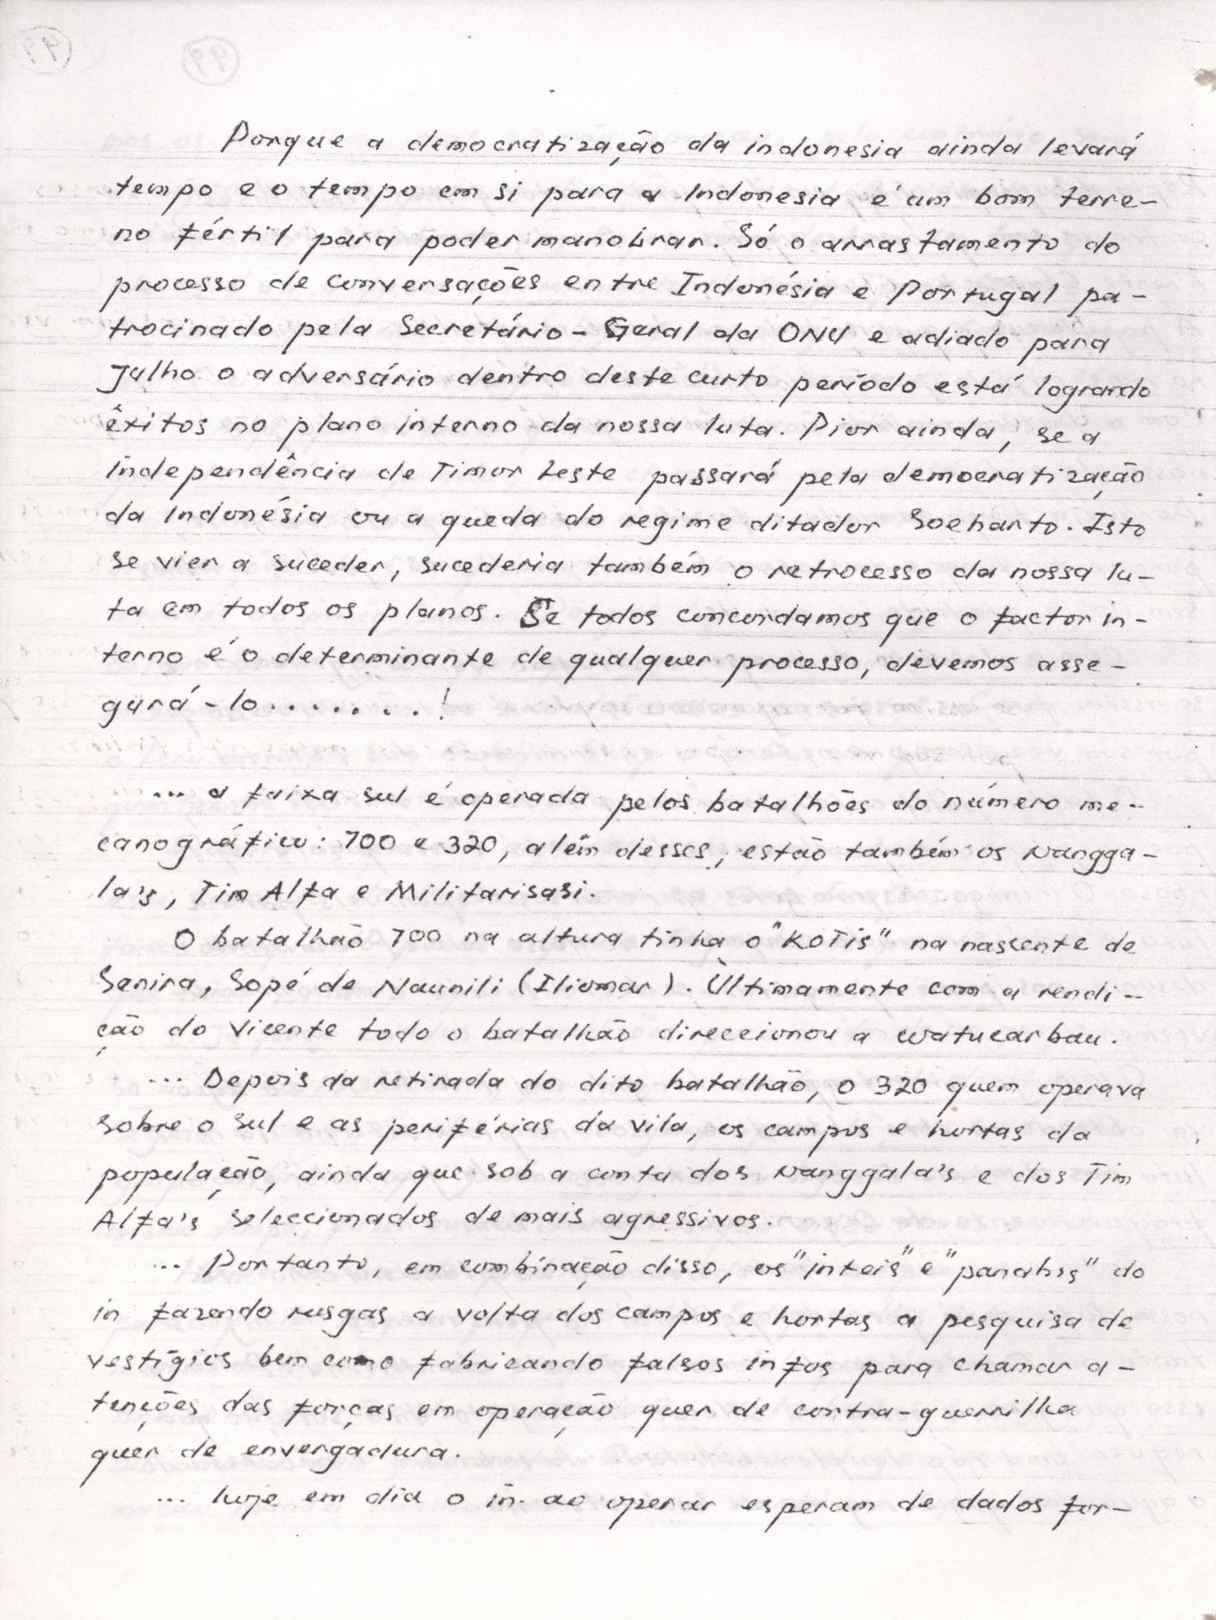 99
Porque a democratização da indonesia ainda levará
tempo e o tempo em si para a Indonesia é um bom terre-
no fértil para poder manobrar. Só o arrastamento do
processo de conversações entre Indonésia e Portugal pa-
trocinado pela Secretário-Geral da ONU e adiado para
Julho o adversário dentro deste curto período está logrando
êxitos no plano interno da nossa luta. Pior ainda, se a
independência de Timor Leste passará pela democratização
da Indonésia ou a queda do regime ditador Soeharto. Isto
se vier a suceder, sucederia também o retrocesso da nossa lu-
ta em todos os planos. Se todos concordamos que o factor in-
terno é o determinante de qualquer processo, devemos asse-
gurá-lo.......!
... a faixa sul é operada pelos batalhões do número me-
canográfico: 700 e 320, além desses, estão também os Nangga-
la's, Tim Alfa e Militarisasi.
O batalhão 700 na altura tinha o "KOTis" na nascente de
Senira, Sopé de Naunili (Iliomar). Ùltimamente com a rendi-
ção do Vicente todo o batalhão direccionou a watucarbau.
... Depois da retirada do dito batalhão, o 320 quem operava
sobre o sul e as periférias da vila, os campos e hortas da
população, ainda que sob a conta dos Nanggala's e dos Tim
Alfa's seleccionados de mais agressivos.
... Portanto, em combinação disso, os "inteis" e "panahis" do
in fazendo rusgas a volta dos campos e hortas a pesquisa de
vestígios bem como fabricando falsos infos para chamar a-
tenções das forças em operação quer de contra-guerrilha
quer de envergadura.
... hoje em dia o in. ao operar esperam de dados for-